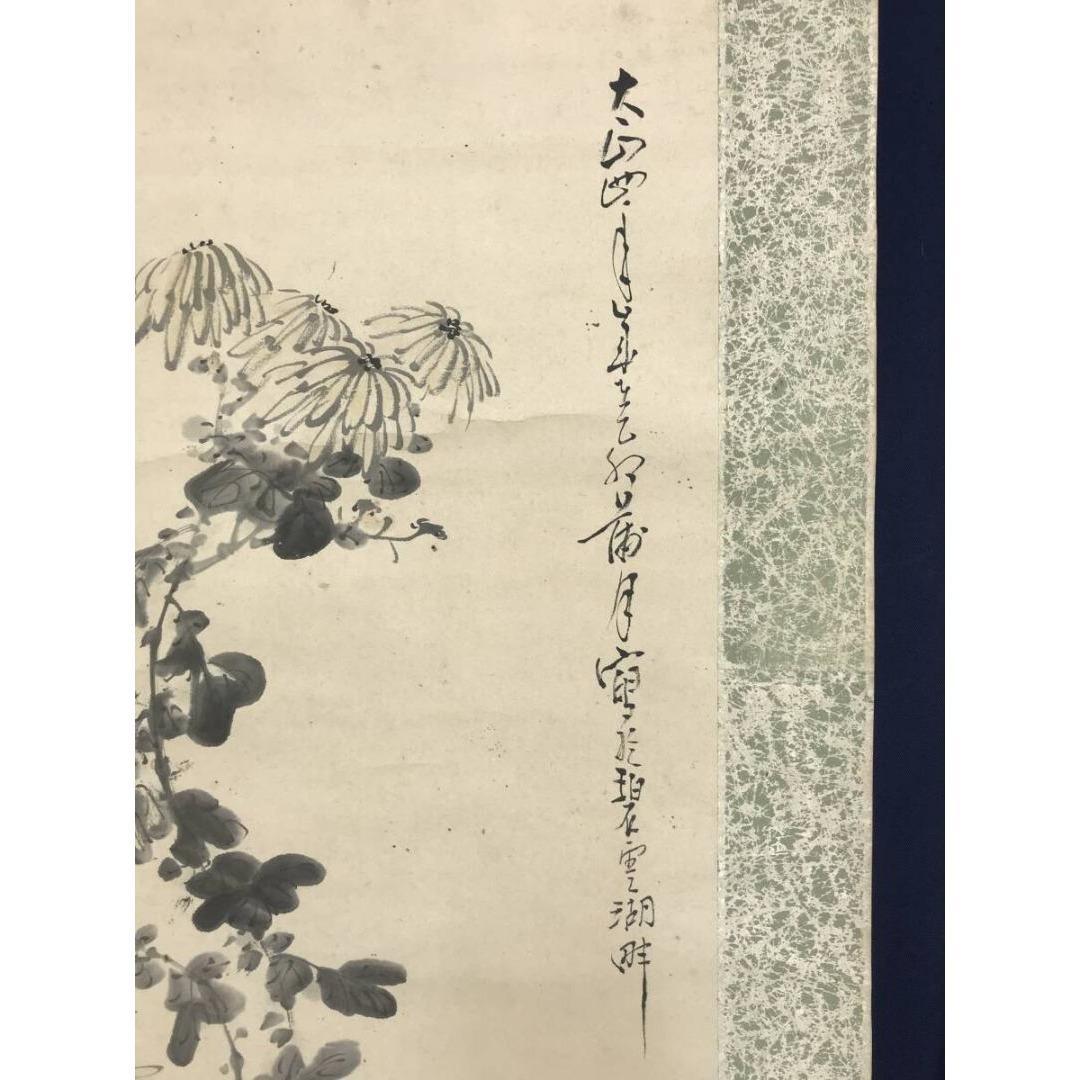 大正四年歳在乙卯蒲月寫於碧雲湖畔